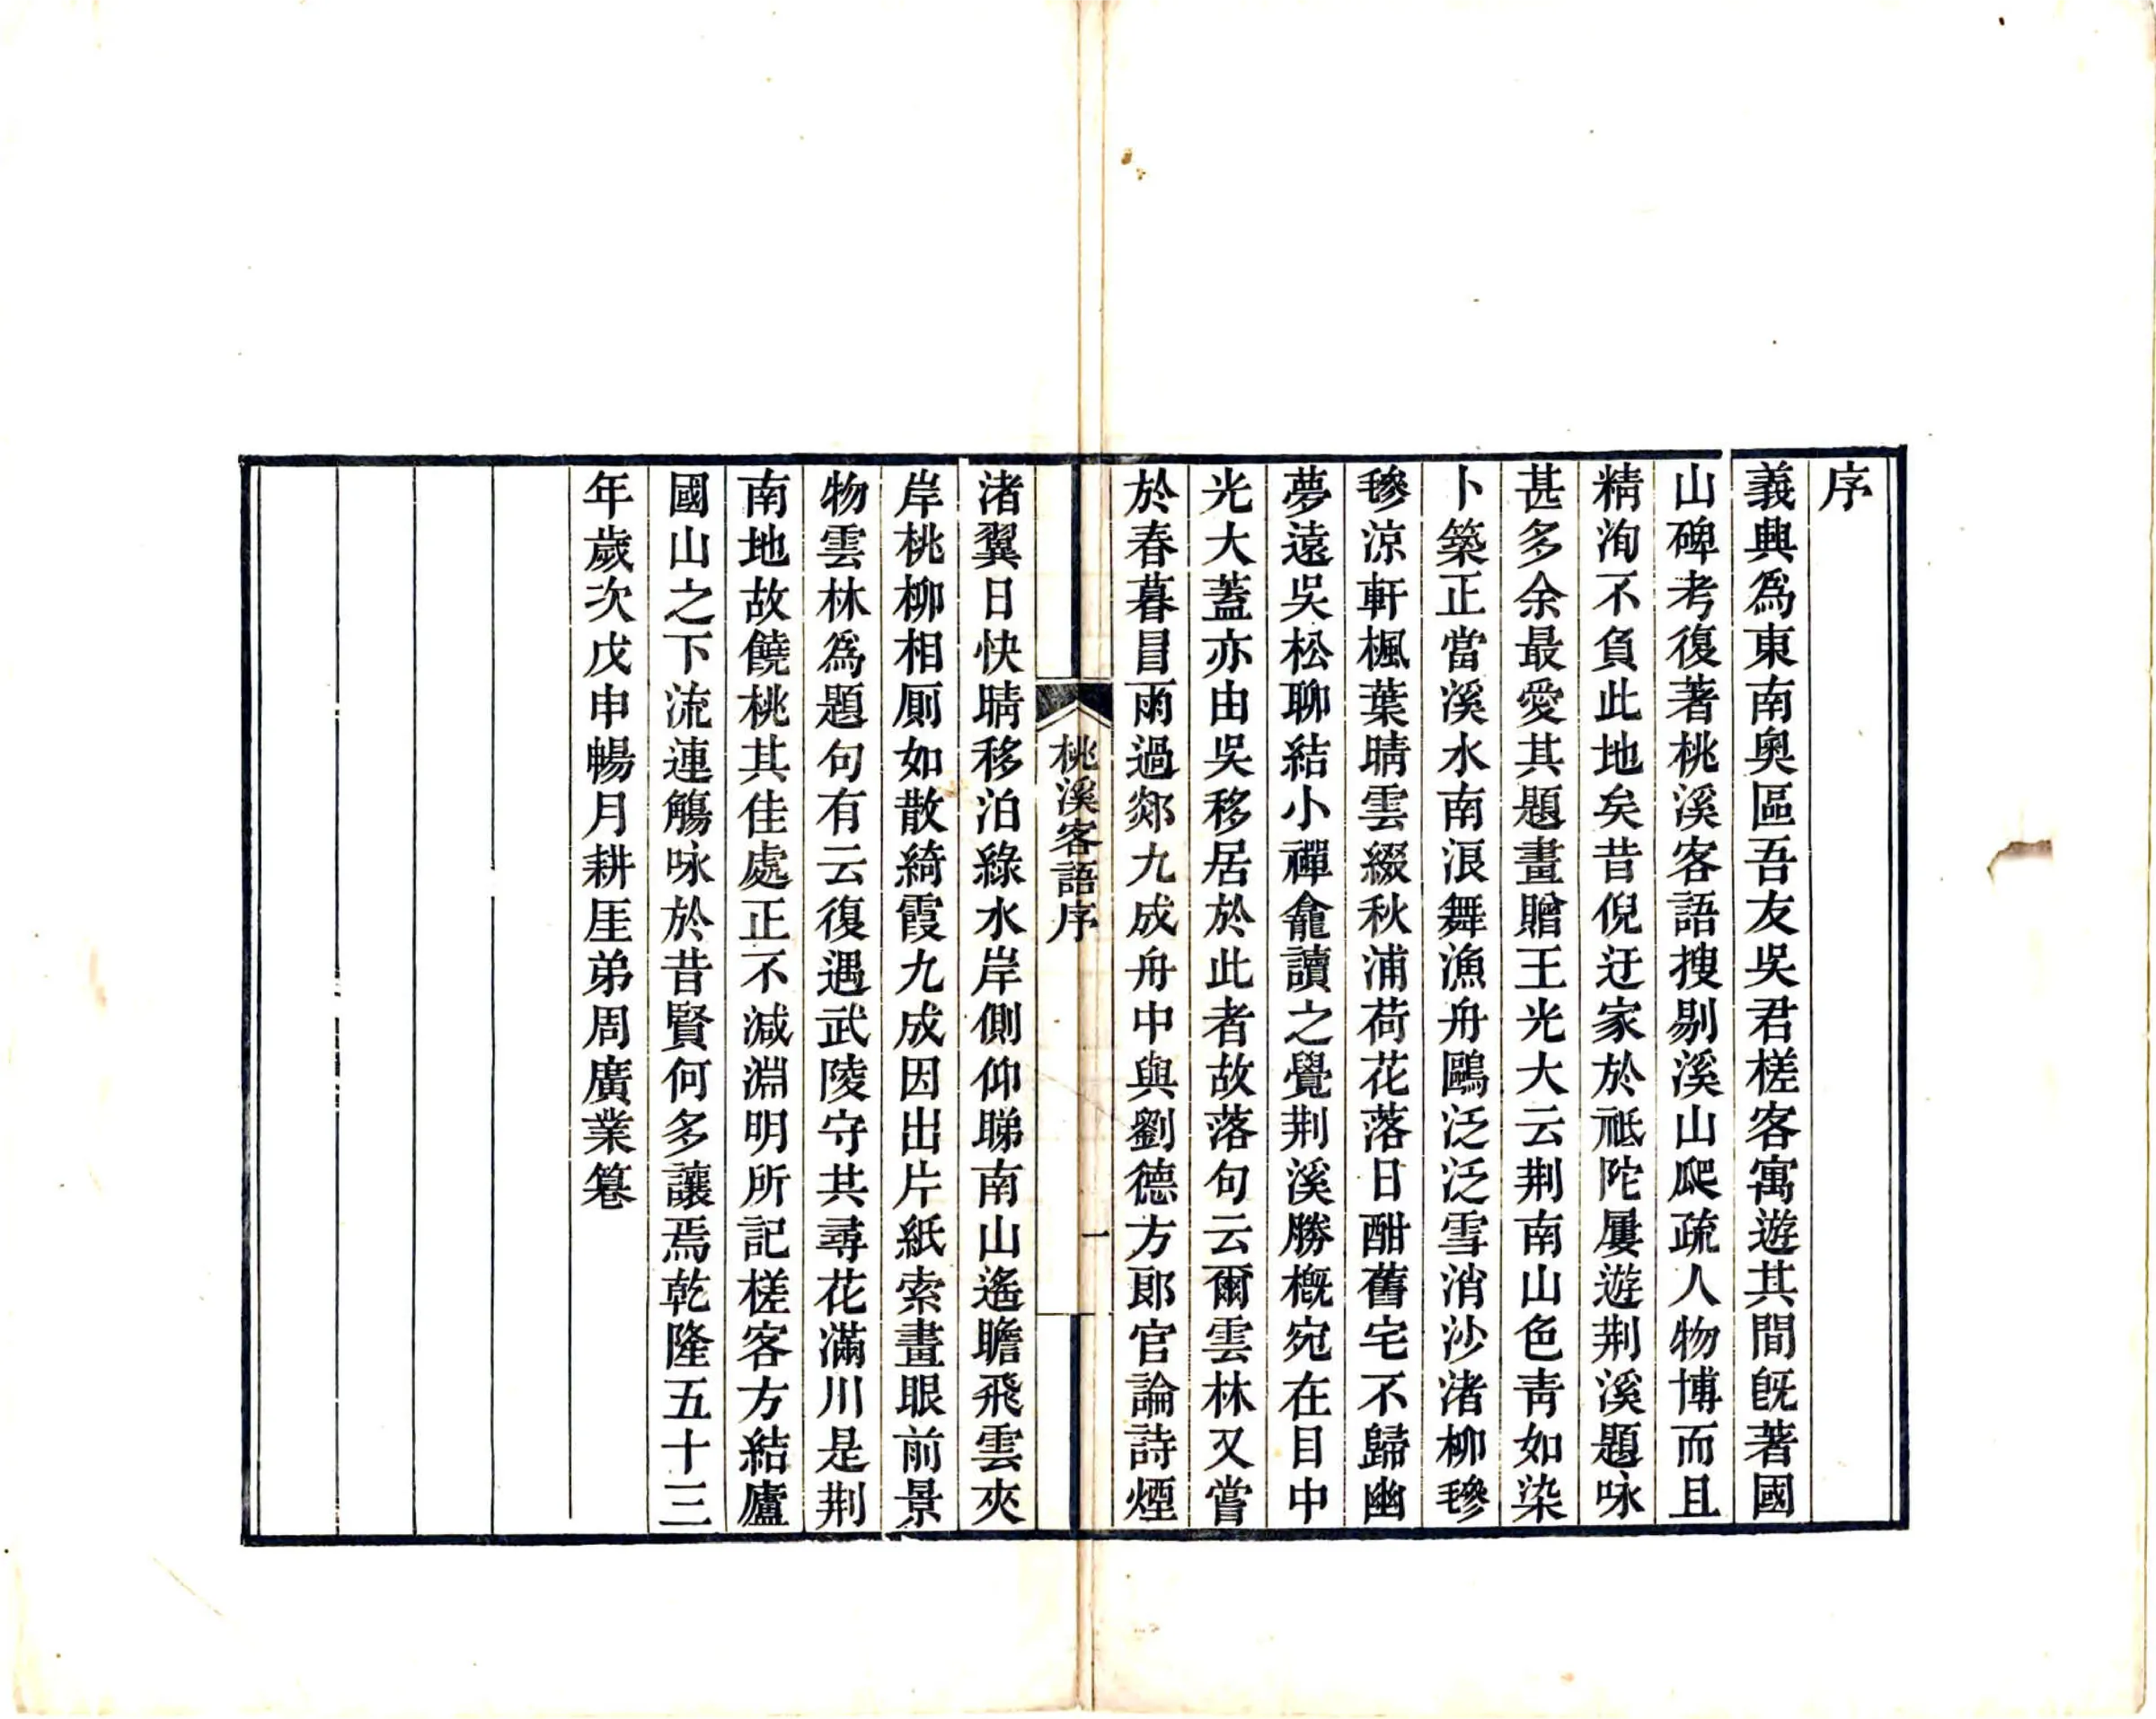 序
義興爲東南奧區吾友吳君槎客寓遊其間旣著國
山碑考復著桃溪客語搜剔溪山爬疏人物博而且
精洵不負此地矣昔倪迂家於祗陀屢遊荆溪題咏
甚多余最愛其題畫贈王光大云荆南山色靑如染
卜築正當溪水南浪舞漁舟鷗泛泛雪消沙渚柳毿
毿涼軒楓葉晴雲綴秋浦荷花落日酣舊宅不歸幽
夢遠吳松聊結小禪龕讀之覺荆溪勝槪宛在目中
光大蓋亦由吳移居於此者故落句云爾雲林又嘗
於春暮冒雨過郯九成舟中與劉德方郎官論詩煙
桃溪客語序
一
渚翼日快晴移泊綠水岸側仰睇南山遙瞻飛雲夾
岸桃柳相厠如散綺霞九成因出片紙索畫眼前景
物雲林爲題句有云復遇武陵守共尋花滿川是荆
南地故饒桃其佳處正不減淵明所記槎客方結廬
國山之下流連觴咏於昔賢何多讓焉乾隆五十三
年歲次戊申暢月耕厓弟周廣業篹